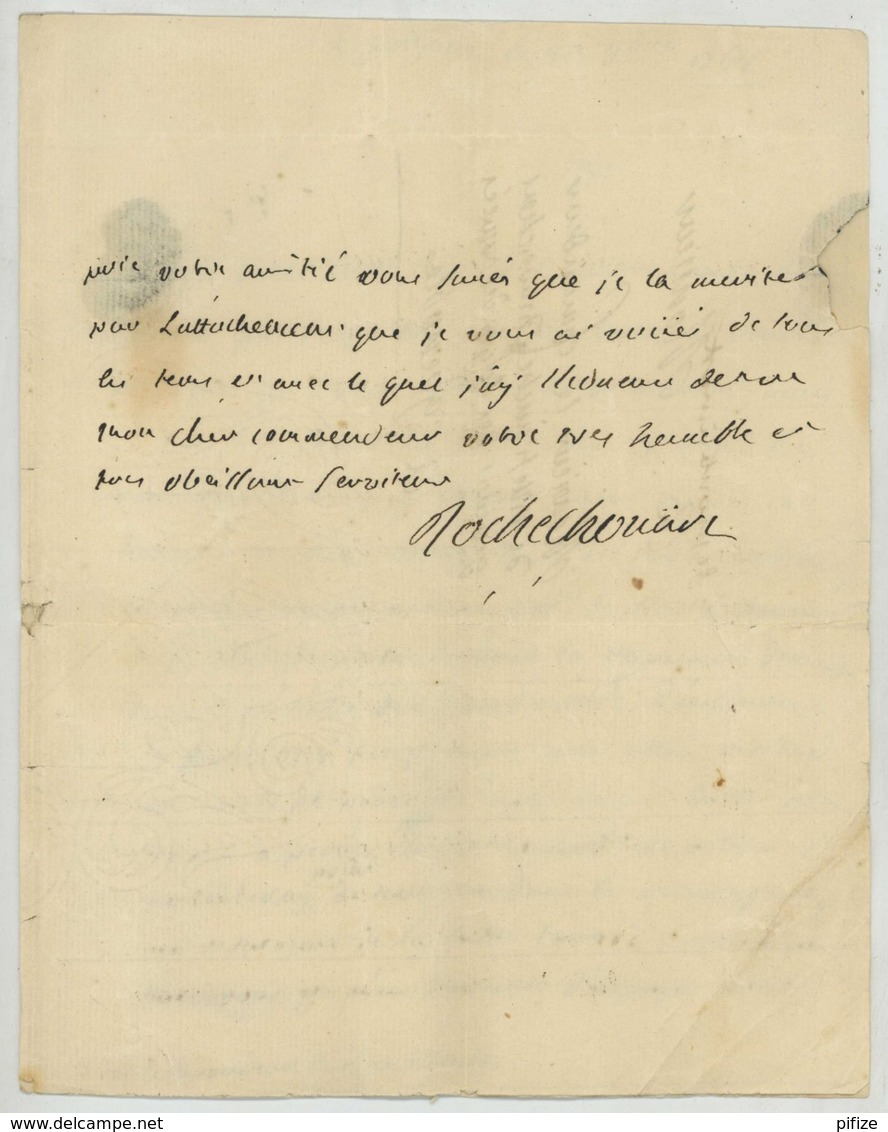 votre amitié vous savés que je la merite
par Lattachement que je vous ai voüé de tous
les tems et avec le quel j'ay lhonneur detre
mon cher commendeur votre tres humble et
tres obeissant serviteur
Rochechoüart
pifize